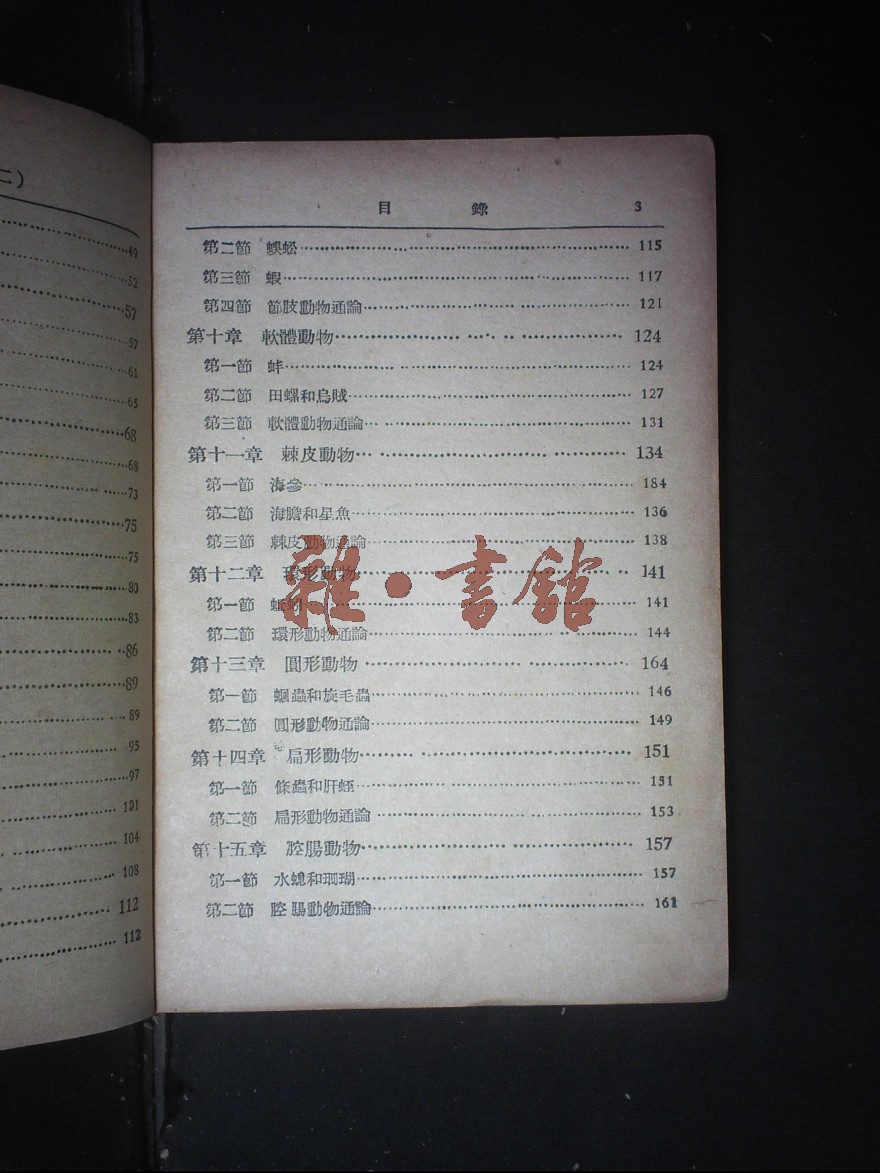 二)
49
52
57
57
61
65
68
68
73
75
75
80
83
86
89
89
95
97
101
104
108
112
112
目 錄 3
第二節 蜈蚣 115
第三節 蝦 117
第四節 節肢動物通論 121
第十章 軟體動物 124
第一節 蚌 124
第二節 田螺和烏賊 127
第三節 軟體動物通論 131
第十一章 棘皮動物 134
第一節 海參 184
第二節 海膽和星魚 136
第三節 棘皮動物通論 138
第十二章 環形動物 141
第一節 蚯蚓 141
第二節 環形動物通論 144
第十三章 圓形動物 164
第一節 蛔蟲和旋毛蟲 146
第二節 圓形動物通論 149
第十四章 扁形動物 151
第一節 條蟲和肝蛭 151
第二節 扁形動物通論 153
第十五章 腔腸動物 157
第一節 水螅和珊瑚 157
第二節 腔腸動物通論 161
雜·書館